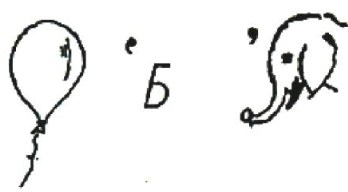 ' Б '